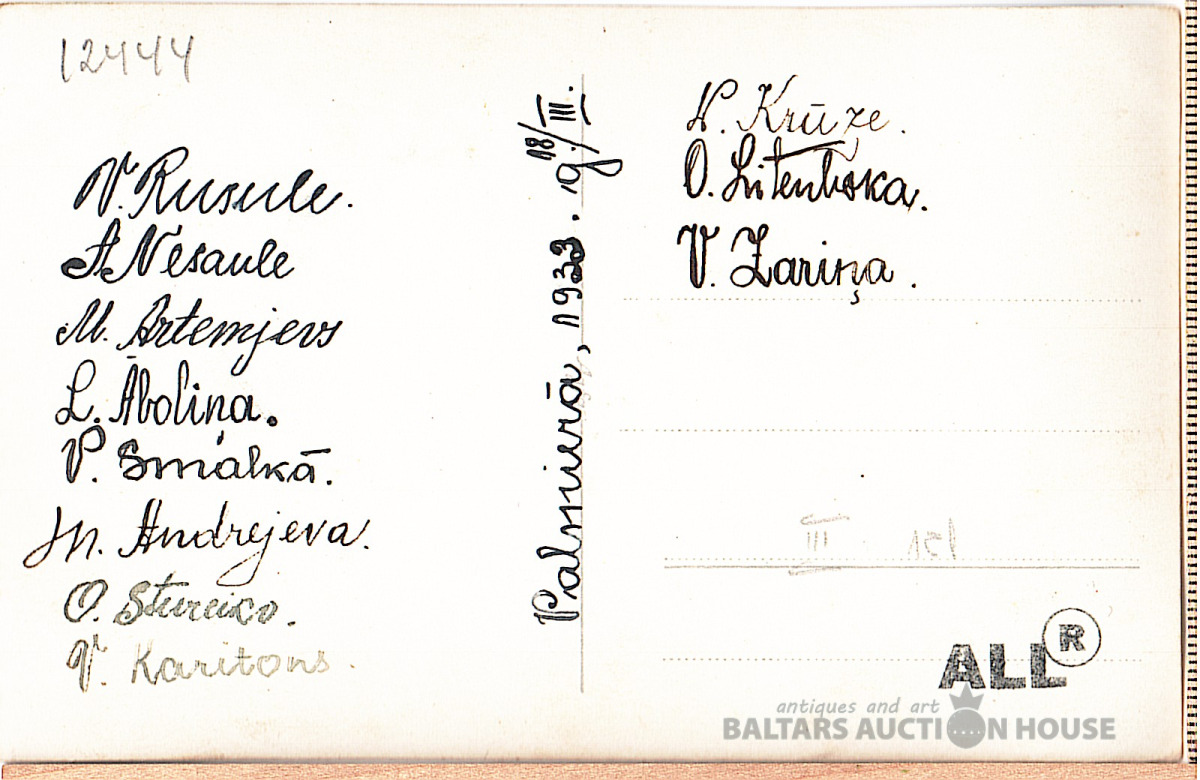 12444
V. Rusule.
A. Nesaule
M. Artemjevs
L. Āboliņa.
P. Smalkā.
M. Andrejeva.
O. Stureiko.
V. Karitons.
Valmierā, 1933. g. 18/III.
Krūze.
O.
V. Zariņa.
III 151
ALL R
antiques and art
BALTARS AUCTION HOUSE